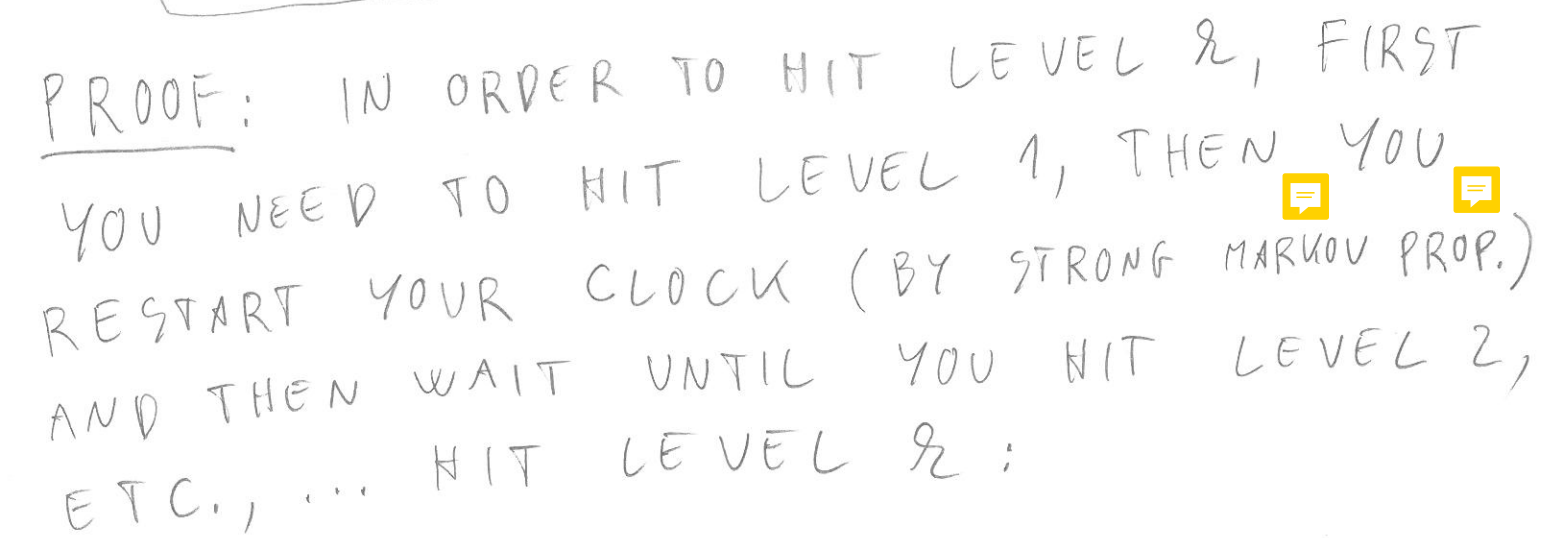 PROOF: IN ORDER TO HIT LEVEL k, FIRST
YOU NEED TO HIT LEVEL 1, THEN YOU
RESTART YOUR CLOCK (BY STRONG MARKOV PROP.)
AND THEN WAIT UNTIL YOU HIT LEVEL 2,
ETC., ... HIT LEVEL k: